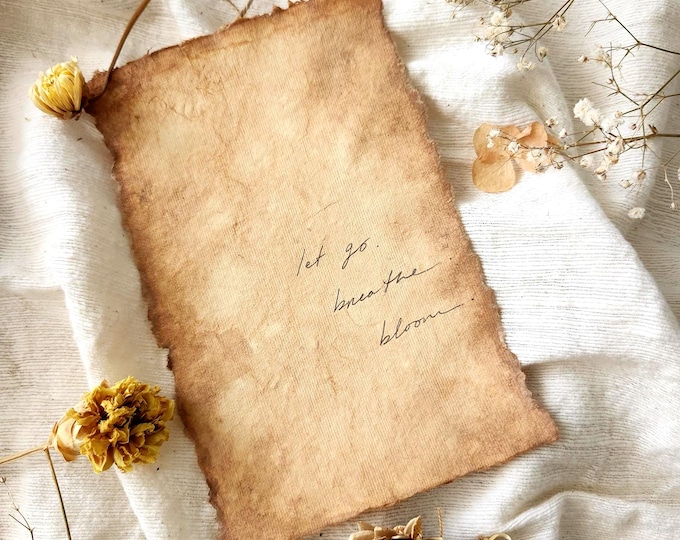 let go.
breathe.
bloom.